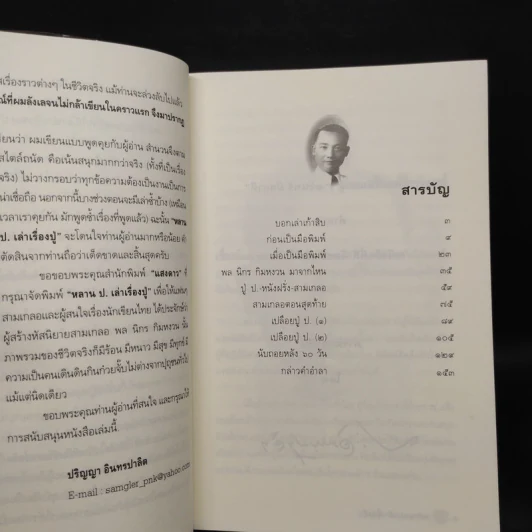 สเรื่องราวต่างๆ ในชีวิตจริง แม้ท่านจะล่วงลับไปแล้ว
ณ์ที่ผมลังเลจนไม่กล้าเขียนในคราวแรก จึงมาปรากฏ
เรียนว่า ผมเขียนแบบพูดคุยกับผู้อ่าน สำนวนจึงตาม
สไตล์ถนัด คือเน้นสนุกมากกว่าจริง (ทั้งที่เป็นเรื่อง
) ไม่วางกรอบว่าทุกข้อความต้องเป็นงานเป็นการ
น่าเชื่อถือ นอกจากนี้บางช่วงตอนจะมีเล่าซ้ำบ้าง (เหมือน
เวลาเราคุยกัน มักพูดซ้ำเรื่องที่พูดแล้ว) ฉะนั้น "หลาน
ป. เล่าเรื่องปู่" จะโดนใจท่านผู้อ่านมากหรือน้อย
ตัดสินจากท่านถือว่าเด็ดขาดและสิ้นสุดครับ
ขอขอบพระคุณสำนักพิมพ์ "แสงดาว" ที่
กรุณาจัดพิมพ์ "หลาน ป. เล่าเรื่องปู่" เพื่อให้แฟนๆ
สามเกลอและผู้สนใจเรื่องนักเขียนไทย ได้ประจักษ์ว่า
ผู้สร้างหัสนิยายสามเกลอ พล นิกร กิมหงวน นั้น
ภาพรวมของชีวิตจริงก็มีร้อน มีหนาว มีสุข มีทุกข์
ความเป็นคนเดินดินกินก๋วยจั๊บไม่ต่างจากปุถุชนทั่วไป
แม้แต่นิดเดียว
ขอบพระคุณท่านผู้อ่านที่สนใจ และกรุณาให้
การสนับสนุนหนังสือเล่มนี้
ปริญญา อินทรปาลิต
E-mail : samgler_pnk@yahoo.com
สารบัญ
บอกเล่าเก้าสิบ ๓
ก่อนเป็นมือพิมพ์ ๙
เมื่อเป็นมือพิมพ์ ๒๓
พล นิกร กิมหงวน มาจากไหน ๓๕
ปู่ ป.-หนังฝรั่ง-สามเกลอ ๕๙
สามเกลอตอนสุดท้าย ๗๕
เปลือยปู่ ป. (๑) ๘๙
เปลือยปู่ ป. (๒) ๑๐๕
นับถอยหลัง ๖๐ วัน ๑๒๙
กล่าวคำอำลา ๑๕๓